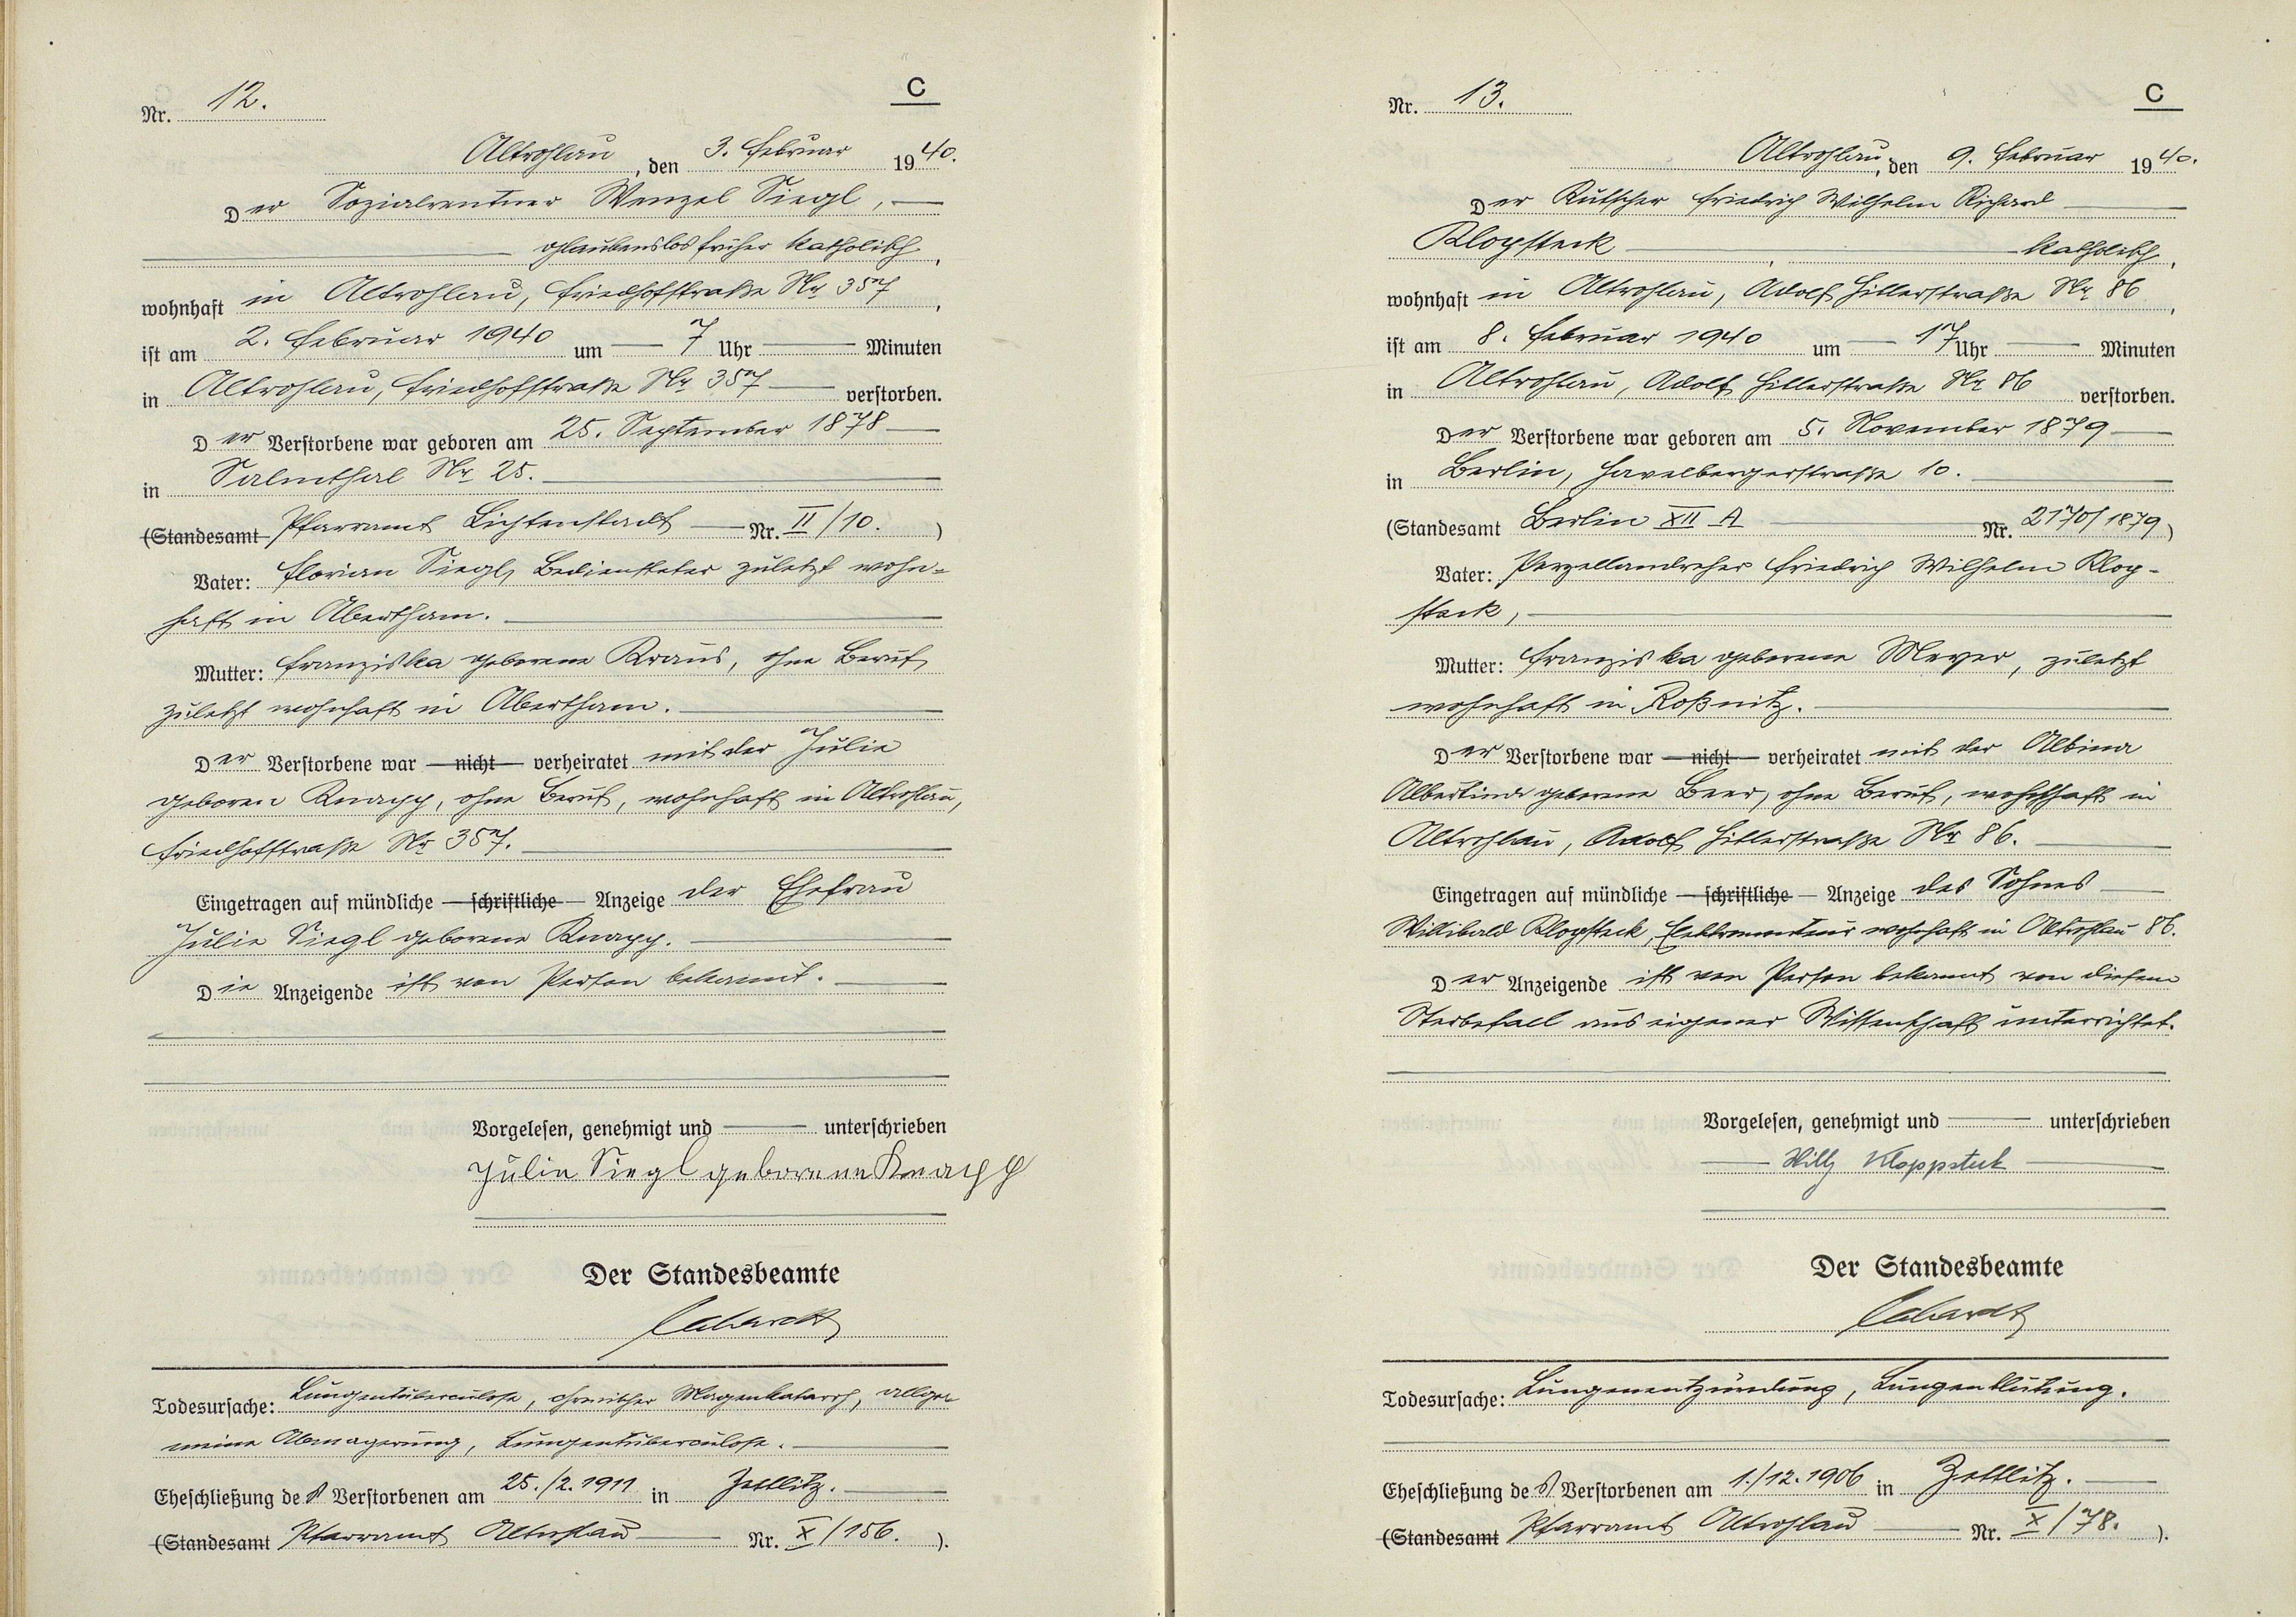 Nr. 12.
C
Altrohlau, den 3. Februar 1940.
Der Sozialrentner Wenzel Siegl,
glaubenslos früher katholisch,
wohnhaft in Altrohlau, Friedhofstraße Nr 357,
ist am 2. Februar 1940 um 7 Uhr Minuten
in Altrohlau, Friedhofstraße Nr 357 verstorben.
Der Verstorbene war geboren am 25. September 1878
in Salmthal Nr 25.
(Standesamt Pfarramt Lichtenstadt Nr. II/10.)
Vater: Florian Siegl, Bediensteter zuletzt wohn=
haft in Abertham.
Mutter: Franziska geborene Kraus, ohne Beruf,
zuletzt wohnhaft in Abertham.
Der Verstorbene war nicht verheiratet mit der Julie
geboren Knapp, ohne Beruf, wohnhaft in Altrohlau,
Friedhofstraße Nr 357.
Eingetragen auf mündliche schriftliche Anzeige der Ehefrau
Julie Siegl geborene Knapp.
Die Anzeigende ist von Person bekannt.
Vorgelesen, genehmigt und unterschrieben
Julie Siegl geborene Knapp
Der Standesbeamte
Todesursache: Lungentuberculose, chronischer Magenkatarrh, allge-
meine Abmagerung, Lungentuberculose.
Eheschließung des Verstorbenen am 25./2.1911 in Zettlitz.
(Standesamt Pfarramt Altrohlau Nr. X/156.).
Nr. 13.
C
Altrohlau, den 9. Februar 1940.
Der Kutscher Friedrich Wilhelm Richard
Klopsteck, katholisch,
wohnhaft in Altrohlau, Adolf Hitlerstraße Nr 86,
ist am 8. Februar 1940 um 17 Uhr Minuten
in Altrohlau, Adolf Hitlerstraße Nr 86 verstorben.
Der Verstorbene war geboren am 5. November 1879
in Berlin, Havelbergerstraße 10.
(Standesamt Berlin XII A Nr. 2170/1879)
Vater: Porzellandreher Friedrich Wilhelm Klop-
steck,
Mutter: Franziska geborene Meyer, zuletzt
wohnhaft in Roßnitz.
Der Verstorbene war nicht verheiratet mit der Albina
Albertine geborene Beer, ohne Beruf, wohnhaft in
Altrohlau, Adolf Hitlerstraße Nr 86.
Eingetragen auf mündliche schriftliche Anzeige des Sohnes
Willibald Klopsteck, Elektromonteur wohnhaft in Altrohlau 86.
Der Anzeigende ist von Person bekannt von diesem
Sterbefall aus eigener Wissenschaft unterrichtet.
Vorgelesen, genehmigt und unterschrieben
Willy Kloppsteck
Der Standesbeamte
Todesursache: Lungenentzündung, Lungenblutung.
Eheschließung des Verstorbenen am 1./12.1906 in Zettlitz.
(Standesamt Pfarramt Altrohlau Nr. X/78.).